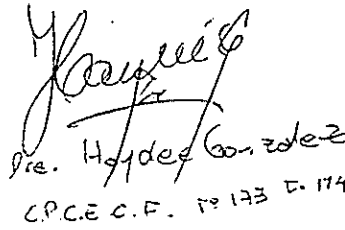 Lic. Haydee Gonzalez
C.P.C.E.C.F. Tº 173 F. 174